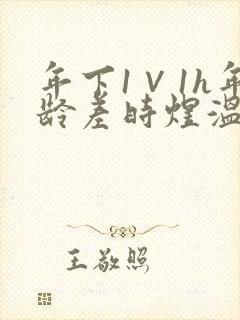 年下1V1h年
龄差时煜温
王敬照